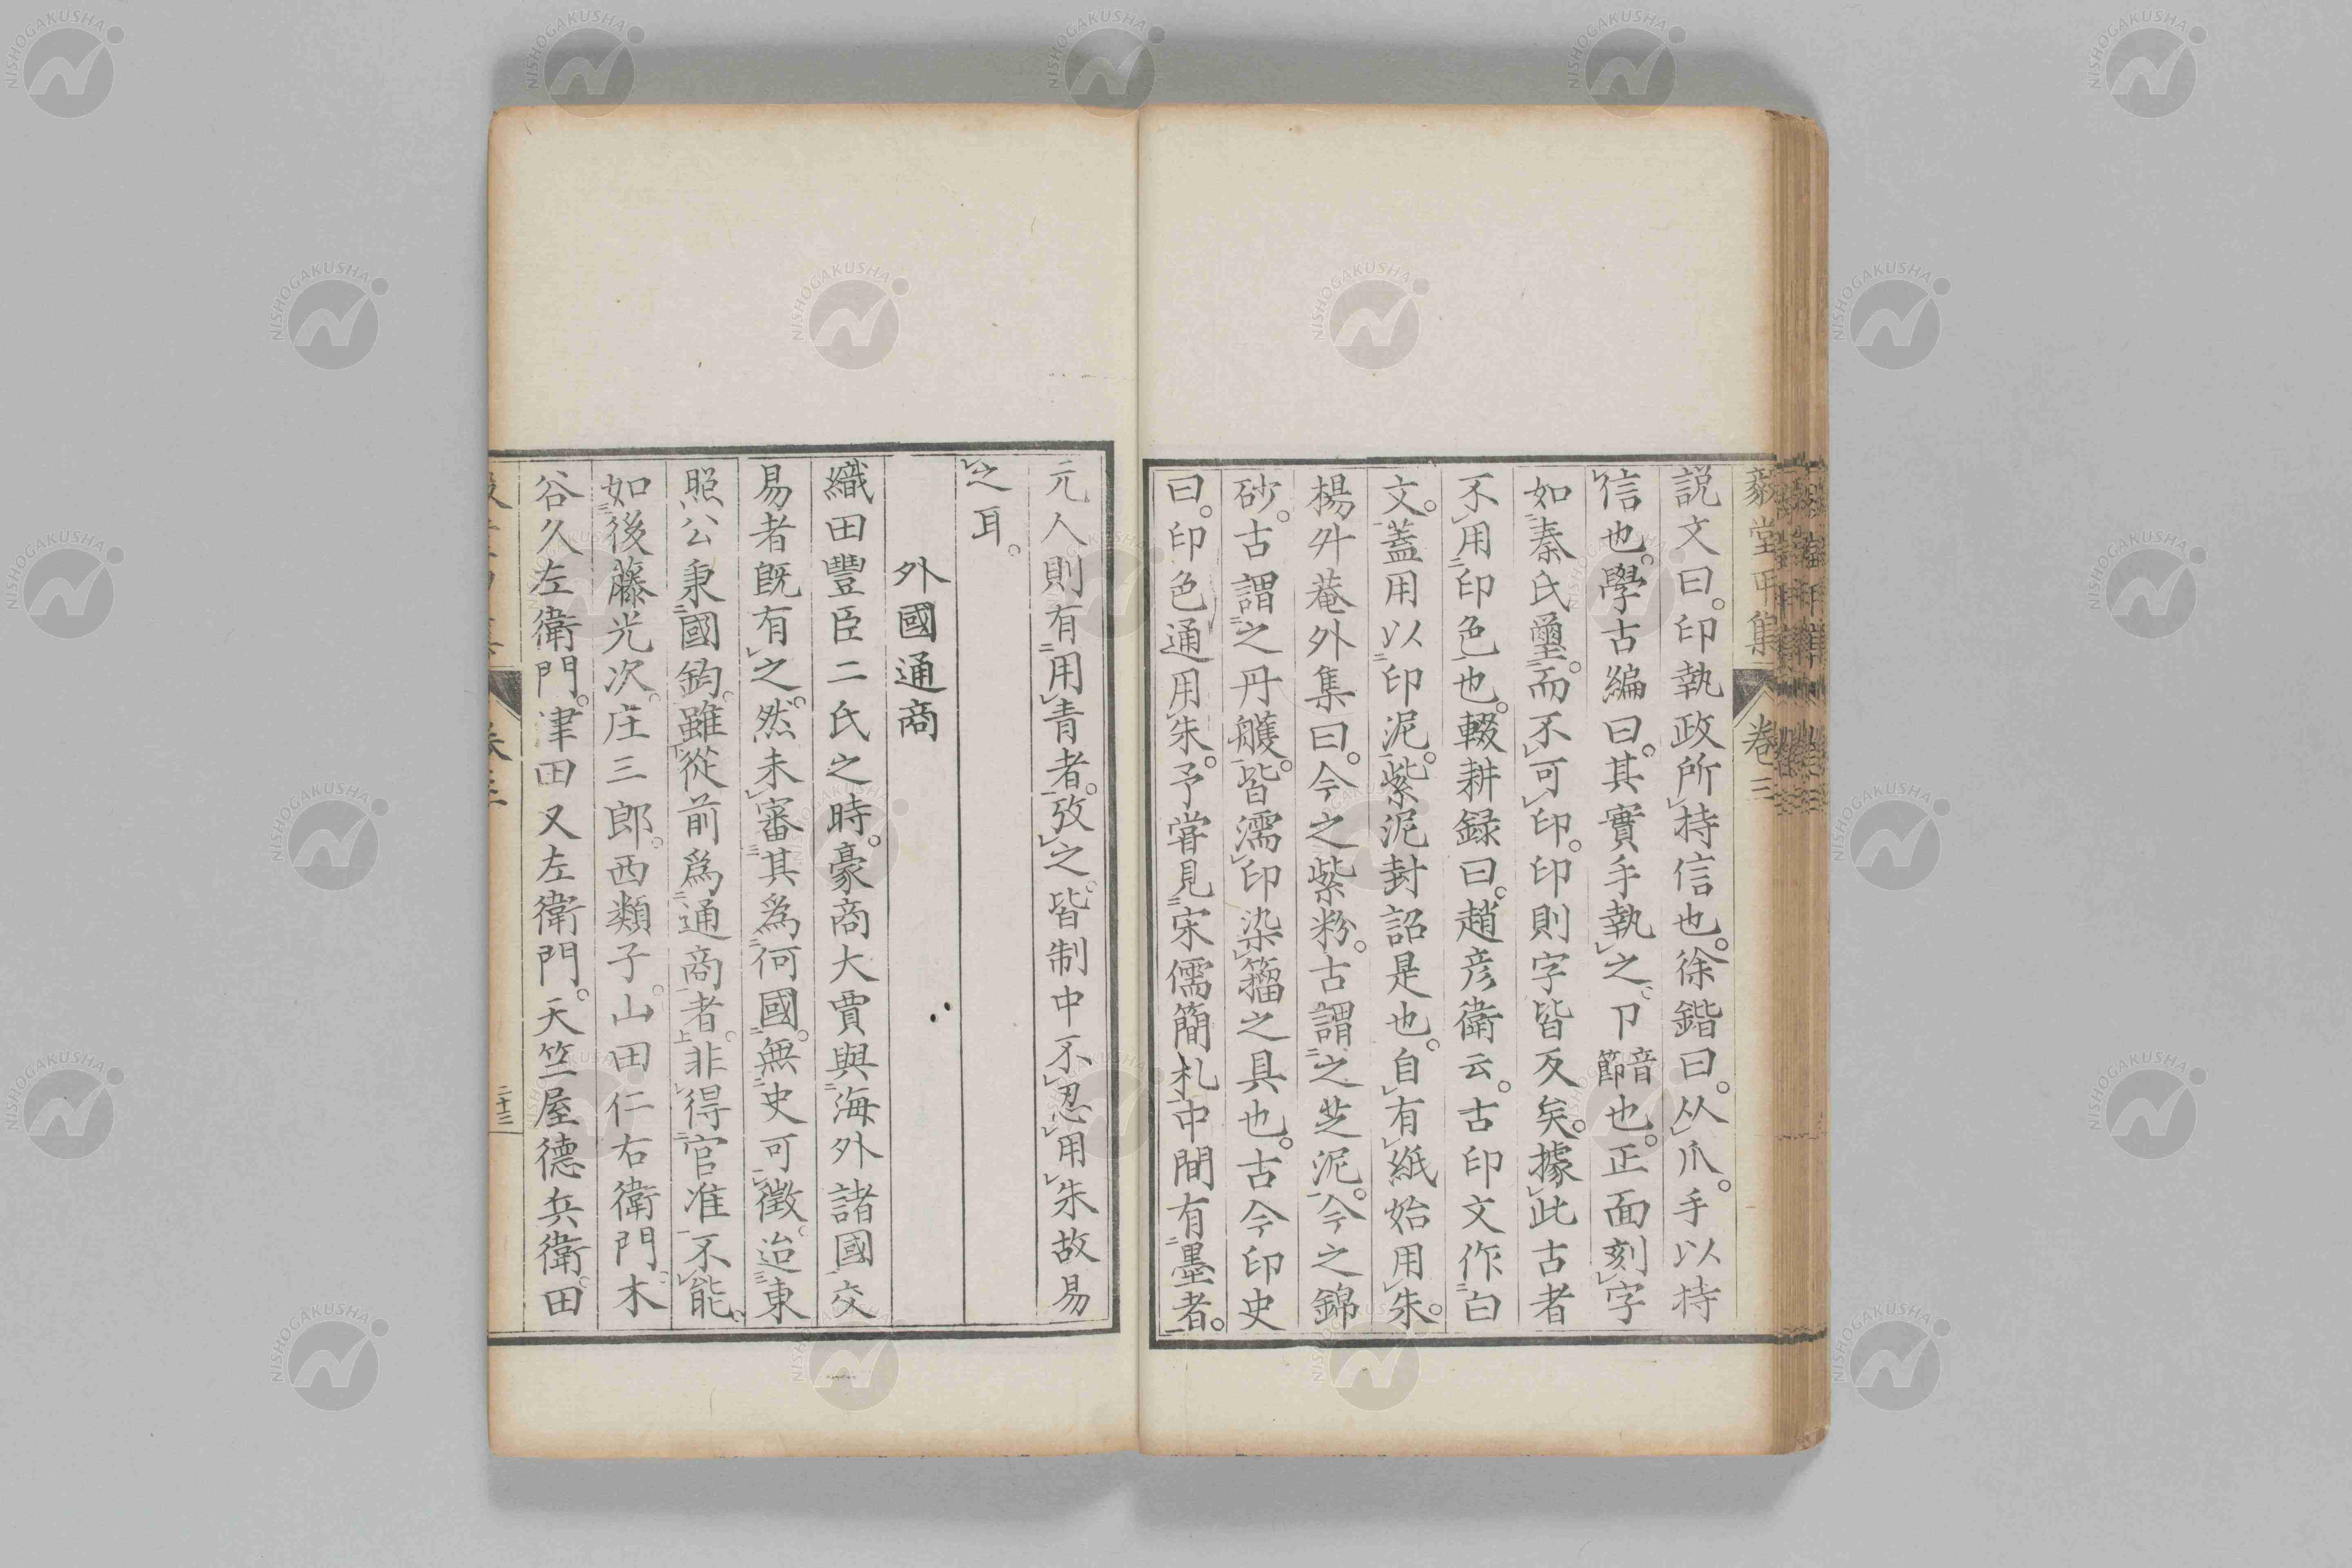 毅堂丙集 卷三
説文曰。印執政所持信也。徐鍇曰。从爪。手以持
信也。學古編曰。其實手執之。卩音節也。正面刻字
如秦氏璽。而不可印。印則字皆反矣。據此古者
不用印色也。輟耕録曰。趙彦衛云。古印文作白
文。蓋用以印泥。紫泥封詔是也。自有紙始用朱。
楊升菴外集曰。今之紫粉。古謂之芝泥。今之錦
砂。古謂之丹雘。皆濡印染籀之具也。古今印史
曰。印色通用朱。予甞見宋儒簡札中間有墨者。
元人則有用青者。攷之。皆制中不忍用朱故易
之耳。
外國通商
織田豐臣二氏之時。豪商大賈與海外諸國交
易者既有之。然未審其為何國。無史可徵。迨東
照公秉國鈞。雖從前爲通商者。非得官准不能。
如後藤光次。庄三郎。西類子。山田仁右衛門。木
谷久左衛門。津田又左衛門。天竺屋德兵衛。田
卷三
二十三
NISHOGAKUSHA